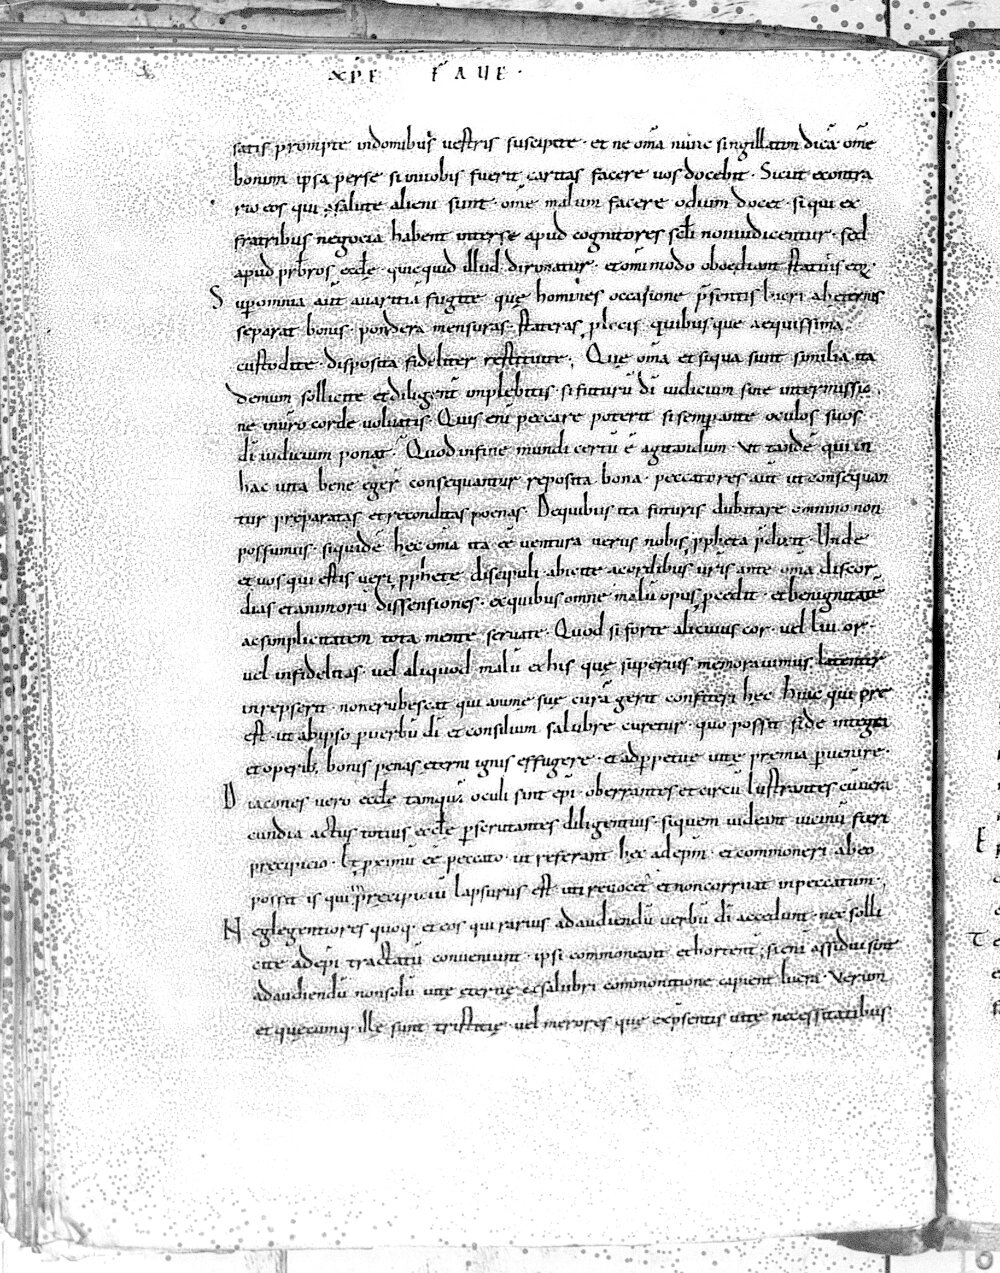 XPE FAUE ·
satis prompte indomibus uestris suscipite · et ne om̄a nunc singillatim dicā · om̄e
bonum ipsa perse si inuobis fuerit caritas facere uos docebit · Sicut econtra
rio eos qui a salute alieni sunt · om̄e malum facere odium docet · si qui ex
fratribus negocia habent interse apud cognitores scl̄i noniudicentur · sed
apud prb̄ros eccl̄ę · quicquid illud dirimatur · et omimodo oboediant statutis
Sup̄ omnia aut̄ auaritiā fugite quę homines occasione p̄sentis lucri abeternis
separat bonis · pondera mensuras stateras p̄ locis quibusque aequissima
custodite · disposita fideliter restituite · Quę om̄a et siqua sunt similia ita
demum sollicite et diligent̄ implebitis · si futurū dī iudicium sine intermissio
ne in ur̄o corde uoluatis · Quis enī peccare poterit si semp̄ ante oculos suos
dī iudicium ponat · Quod infine mundi certū ē agitandum · Vt tandē qui in
hac uita bene eger̄ consequantur reposita bona · peccatores aut̄ ut consequan
tur preparatas et reconditas poenas · Dequibus ita futuris dubitare omnino non
possumus · siquidē hec om̄a ita eē uentura uerus nobis p̄pheta p̄dixit · Unde
et uos qui estis ueri p̄phetę discipuli abicite acordibus ur̄is ante om̄a discor
dias et animorū dissensiones · exquibus omne malū opus p̄cedit · et benignitatē
ac simplicitatem tota mente seruate · Quod si forte alicuius cor · uel liuor ·
uel infidelitas · uel aliquod malū ex his quę superius memorauimus latenter
inrepserit · non erubescat qui animę suę curā gerit confiteri hęc huic qui pre
est · ut abipso p̄ uerbū dī et consilium salubre curetur · quo possit fide integri
et operib; bonis penas eterni ignis effugere · et adp̄petuę uitę premia p̄uenire ·
Diacones uero eccl̄ę tamquā oculi sint ep̄i · oberrantes et circū lustrantes cū uere
cundia actus totius eccl̄ę p̄scrutantes diligentius · siquem uideant uicinū fieri
precipicio · Et p̄ximū eē peccato · ut referant hęc adep̄m · et commoneri abeo
possit is qui in precipiciū lapsurus est uti reuocet̄ et noncorruat inpeccatum ·
Neglegentiores quoq · et eos qui rarius adaudiendū uerbū dī accedunt · nec solli
cite adep̄i tractatū conueniunt · ipsi commoneant et hortent̄ · si enī assidui sint
adaudiendū nonsolū uitę eternę exsalubri commonitione capient lucra · Verum
et quęcumq · illę sunt tristitię · uel merores quę exp̄sentis uitę necessitatibus